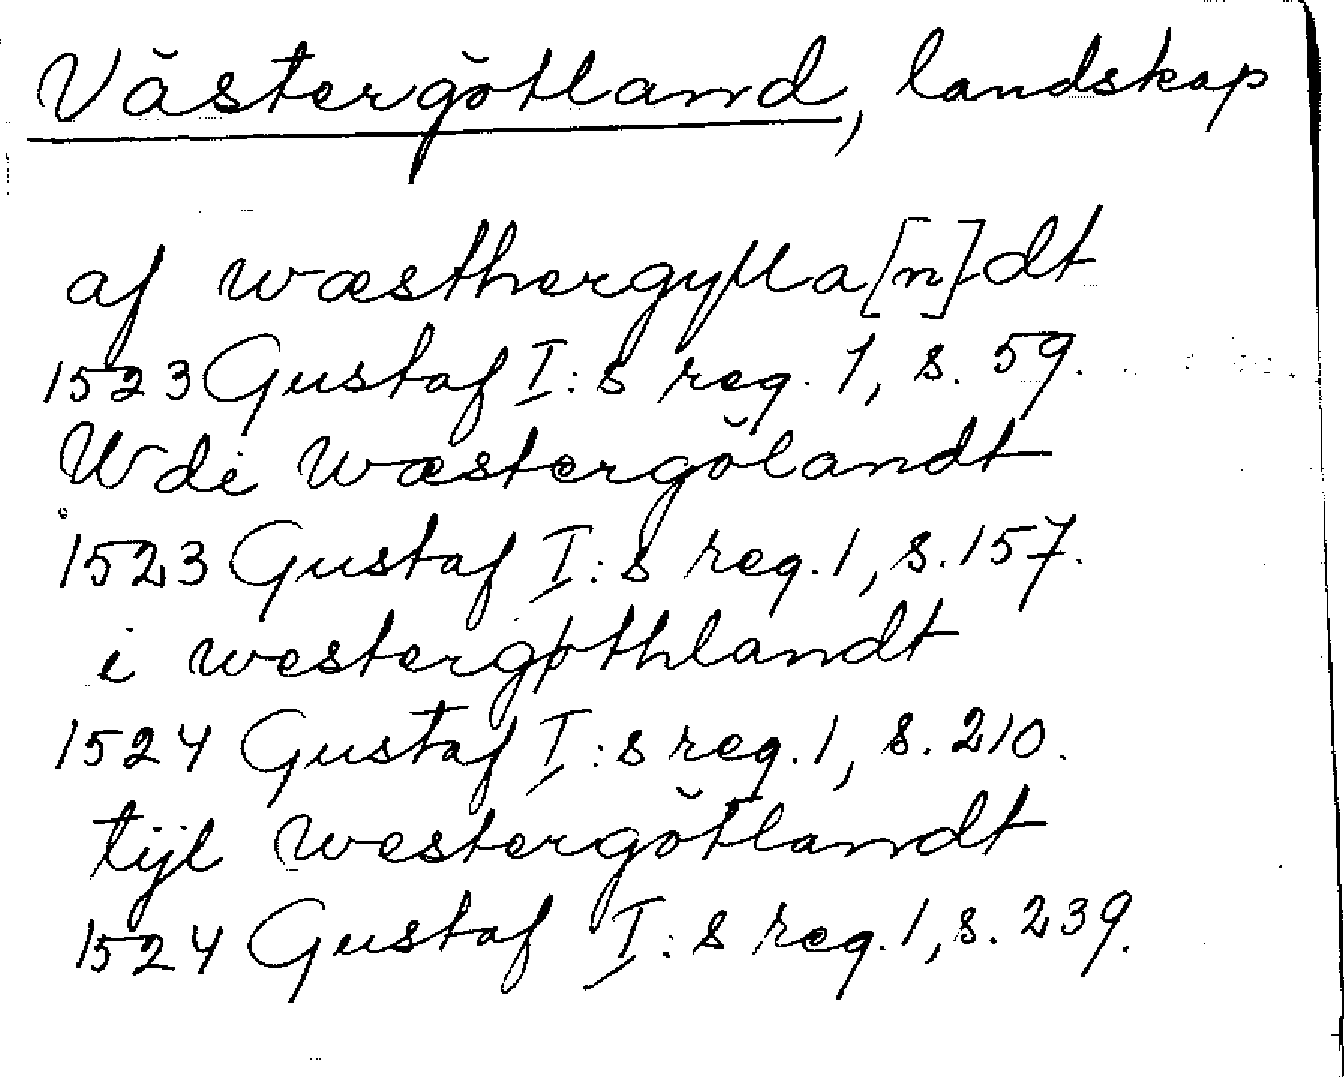 Västergötland, landskap
af wæsthergylla[n]dt
1523 Gustaf I:s reg. 1, s. 59.
Wdi wæstergölandt
1523 Gustaf I:s reg. 1, s. 157.
i westergøthlandt
1524 Gustaf I:s reg. 1, s. 210.
tijl westergötlandt
1524 Gustaf I:s reg. 1, s. 239.